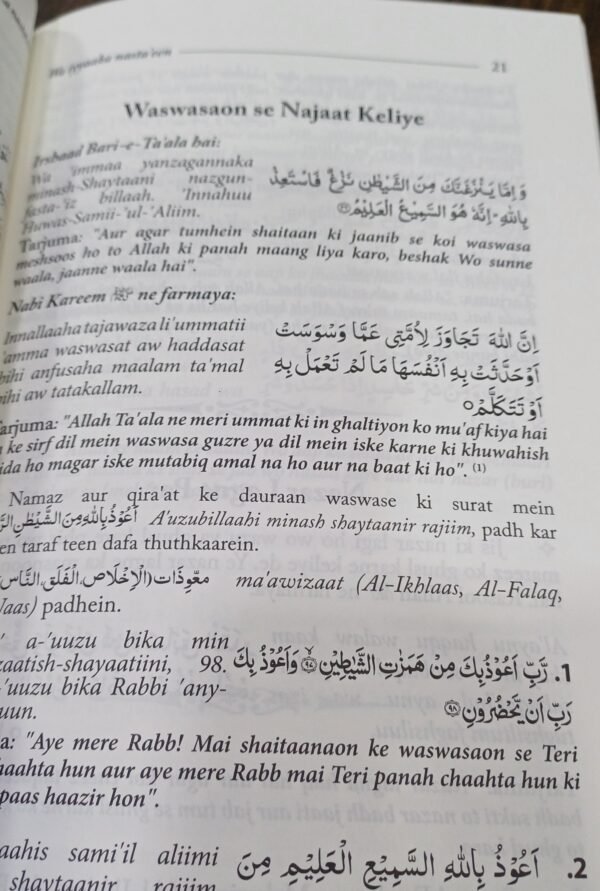 Iyyaaka nasta'een 21
Waswasaon se Najaat Keliye
Irshaad Bari-e-Ta'ala hai:
Wa 'immaa yanzagannaka
minash-Shaytaani nazgun-
fasta-'iz billaah. 'Innahuu
Huwas-Samii-'ul-'Aliim.
وَ اِمَّا يَنْزَغَنَّكَ مِنَ الشَّيْطٰنِ نَزْغٌ فَاسْتَعِذْ
بِاللّٰهِ ؕ اِنَّهٗ هُوَ السَّمِيْعُ الْعَلِيْمُ
Tarjuma: "Aur agar tumhein shaitaan ki jaanib se koi waswasa
mehsoos ho to Allah ki panah maang liya karo, beshak Wo sunne
waala, jaanne waala hai".
Nabi Kareem ﷺ ne farmaya:
Innallaaha tajawaza li'ummatii
'amma waswasat aw haddasat
bihi anfusaha maalam ta'mal
bihi aw tatakallam.
اِنَّ اللّٰهَ تَجَاوَزَ لِاُمَّتِىْ عَمَّا وَسْوَسَتْ
اَوْ حَدَّثَتْ بِهٖ اَنْفُسَهَا مَا لَمْ تَعْمَلْ بِهٖ
اَوْ تَتَكَلَّمْ
Tarjuma: "Allah Ta'ala ne meri ummat ki in ghaltiyon ko mu'af kiya hai
ke sirf dil mein waswasa guzre ya dil mein iske karne ki khuwahish
ida ho magar iske mutabiq amal na ho aur na baat ki ho". (1)
Namaz aur qira'at ke dauraan waswase ki surat mein
اَعُوْذُ بِاللّٰهِ مِنَ الشَّيْطٰنِ الرَّ A'uzubillaahi minash shaytaanir rajiim, padh kar
en taraf teen dafa thuthkaarein.
معوّذات (الْاِخْلَاص، الْفَلَق، النَّاس) ma'awizaat (Al-Ikhlaas, Al-Falaq,
Naas) padhein.
a-'uuzu bika min
zaatish-shayaatiini, 98.
-'uuzu bika Rabbi 'any-
uun.
1. رَّبِّ اَعُوْذُ بِكَ مِنْ هَمَزٰتِ الشَّيٰطِيْنِ ﴿۹۷﴾ وَ اَعُوْذُ بِكَ
رَبِّ اَنْ يَّحْضُرُوْنِ ﴿۹۸﴾
a: "Aye mere Rabb! Mai shaitaanaon ke waswasaon se Teri
chaahta hun aur aye mere Rabb mai Teri panah chaahta hun ki
paas haazir hon".
aahis sami'il aliimi
shaytaanir rajiim
2. اَعُوْذُ بِاللّٰهِ السَّمِيْعِ الْعَلِيْمِ مِنَ